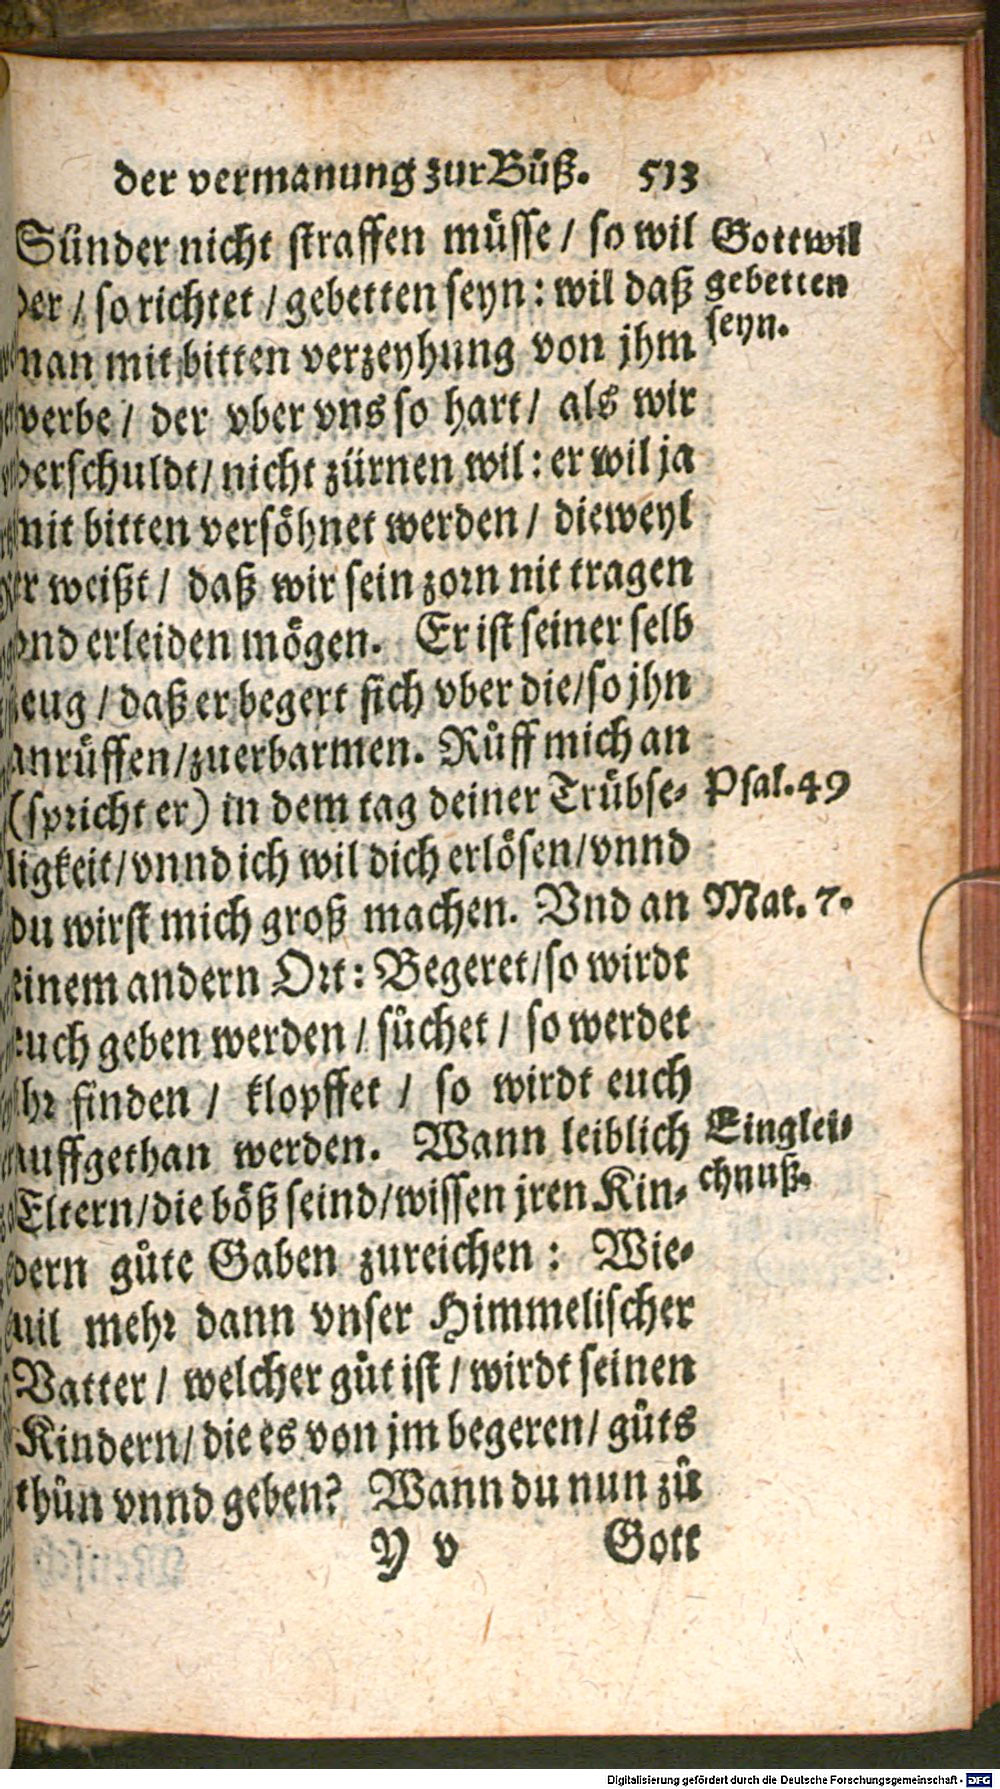 der vermanung zur Bůß. 513
Sünder nicht straffen müsse / so wil
der / so richtet / gebetten seyn: wil daß
man mit bitten verzeyhung von jhm
werbe / der vber vns so hart / als wir
verschuldt / nicht zürnen wil: er wil ja
mit bitten versöhnet werden / dieweyl
er weißt / daß wir sein zorn nit tragen
vnd erleiden mögen. Er ist seiner selb
zeug / daß er begert sich vber die / so jhn
anrüffen / zuerbarmen. Růff mich an
(spricht er) in dem tag deiner Trübse-
ligkeit / vnnd ich wil dich erlösen / vnnd
du wirst mich groß machen. Vnd an
einem andern Ort: Begeret / so wirdt
euch geben werden / sůchet / so werdet
jhr finden / klopffet / so wirdt euch
auffgethan werden. Wann leiblich
Eltern / die böß seind / wissen jren Kin-
dern gůte Gaben zureichen: Wie-
uil mehr dann vnser Himmelischer
Vatter / welcher gůt ist / wirdt seinen
Kindern / die es von jm begeren / gůts
thůn vnnd geben? Wann du nun zů
Y v Gott
Gott wil
gebetten
seyn.
Psal. 49
Mat. 7.
Ein glei-
chnuß.
Digitalisierung gefördert durch die Deutsche Forschungsgemeinschaft - DFG